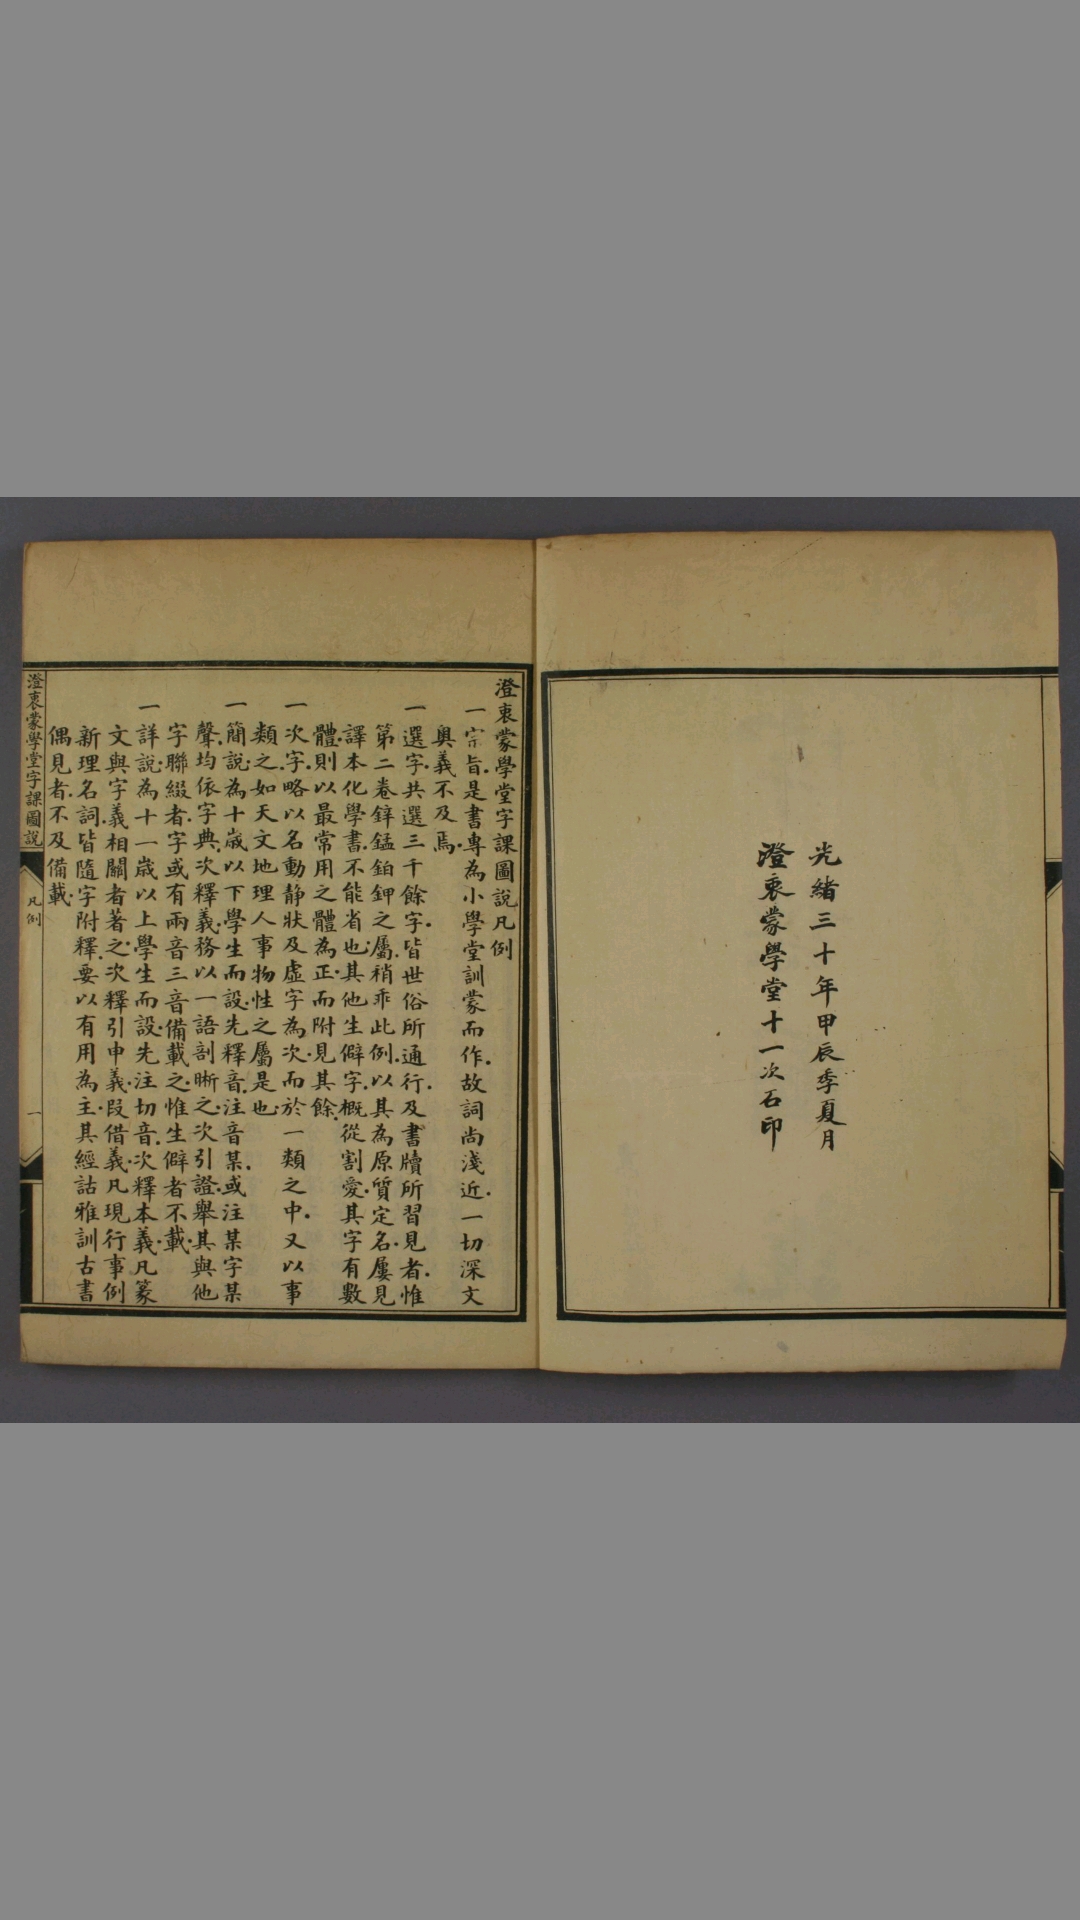 光緒三十年甲辰季夏月
澄衷蒙學堂十一次石印
澄衷蒙學堂字課圖說凡例
一宗旨．是書專為小學堂訓蒙而作．故詞尚淺近．一切深文
奧義不及焉．
一選字．共選三千餘字．皆世俗所通行．及書牘所習見者．惟
第二卷鋅錳鉑鉀之屬．稍乖此例．以其為原質定名．屢見
譯本化學書．不能省也．其他生僻字．概從割愛．其字有數
體．則以最常用之體為正．而附見其餘．
一次字．略以名動靜狀及虛字為次．而於一類之中．又以事
類之．如天文地理人事物性之屬是也．
一簡說．為十歲以下學生而設．先釋音．注音某．或注某字某
聲．均依字典．次釋義．務以一語剖晰之．次引證．舉其與他
字聯綴者．字或有兩音三音備載之．惟生僻者不載．
一詳說．為十一歲以上學生而設．先注切音．次釋本義．凡篆
文與字義相關者著之．次釋引申義．叚借義．凡現行事例
新理名詞．皆隨字附釋．要以有用為主．其經詁雅訓古書
偶見者．不及備載．
澄衷蒙學堂字課圖說
凡例
一